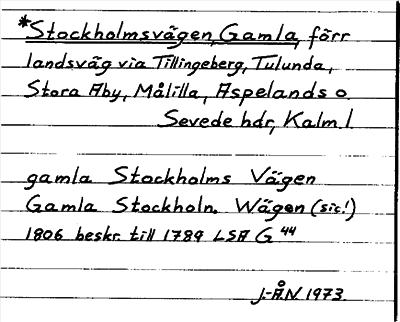 *Stockholmsvägen, Gamla, förr
landsväg via Tillingeberg, Tulunda,
Stora Aby, Målilla, Aspelands o.
Sevede hdr, Kalm l.
gamla Stockholms Vägen
Gamla Stockholn. Wägen (sic!)
1806 beskr. till 1789 LSA G 44
J.-Å.N. 1973.